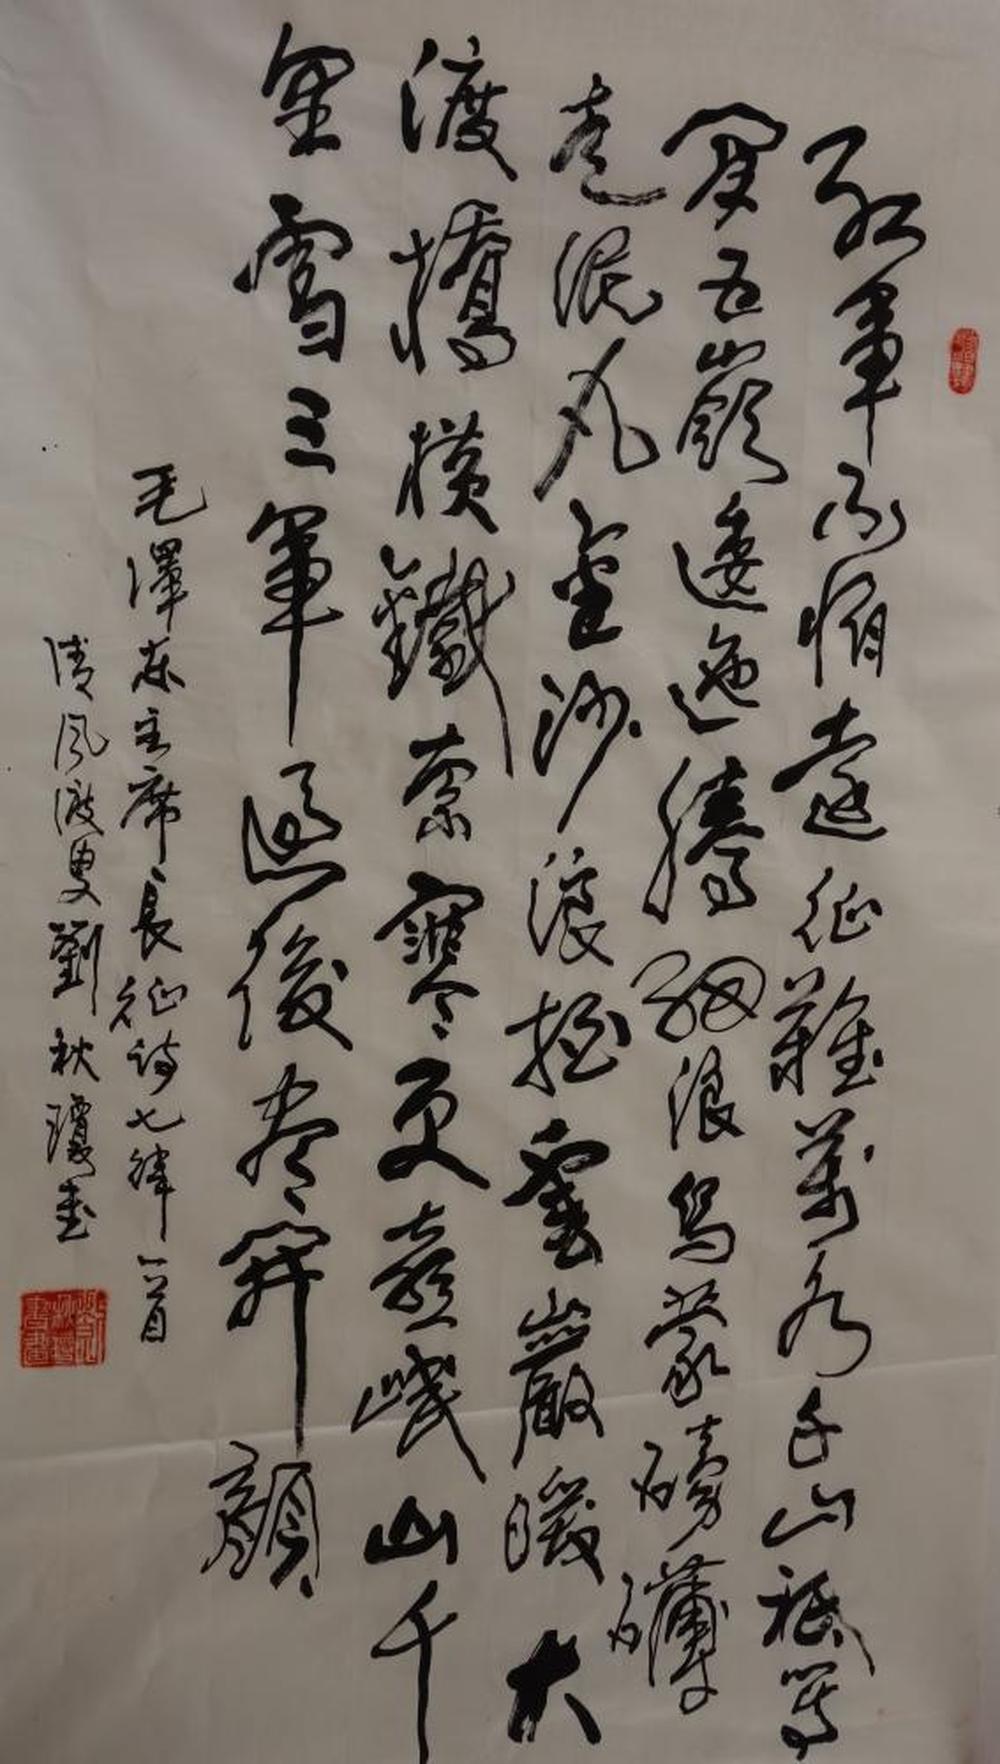 紅軍不怕遠征難萬水千山祇等
閒五嶺逶迤騰細浪烏蒙磅礴
走泥丸金沙浪拍雲巖暖大
渡橋橫鐵索寒更喜岷山千
里雪三軍過後盡開顏
毛澤东主席長征诗七律一首
清风渡叟劉秋瓊書